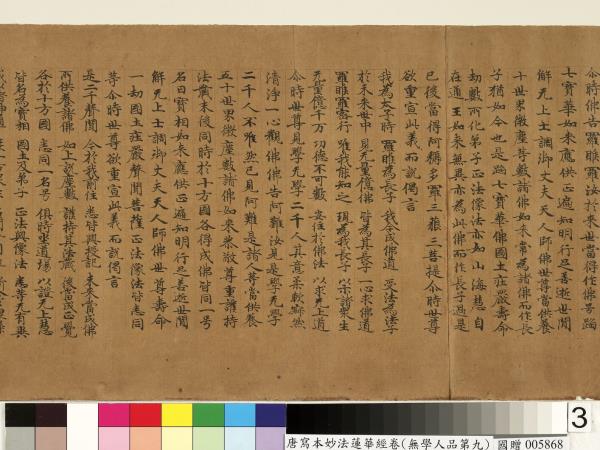 尒時佛告羅睺羅汝於來世當得作佛号蹈
七寶華如來應供正遍知明行足善逝世間
解无上士調御丈夫天人師佛世尊當供養
十世界微塵等數諸佛如來常為諸佛而作長
子猶如今也是蹈七寶華佛國土莊嚴壽命
劫數所化弟子正法像法亦如山海慧自
在通王如來無異亦為此佛而作長子過是
已後當得阿耨多羅三藐三菩提尒時世尊
欲重宣此義而說偈言
我為太子時 羅睺為長子 我今成佛道 受法為法子
於未來世中 見无量億佛 皆為其長子 一心求佛道
羅睺羅密行 唯我能知之 現為我長子 以示諸衆生
无量億千万 功德不可數 安住於佛法 以求无上道
尒時世尊見學无學二千人其意柔軟寂然
清淨一心觀佛佛告阿難汝見是學无學
二千人不唯然已見阿難是諸人等當供養
五十世界微塵數諸佛如來恭敬尊重護持
法藏末後同時於十方國各得成佛皆同一号
名曰寶相如來應供正遍知明行足善逝世間
解无上士調御丈夫天人師佛世尊壽命
一劫國土莊嚴聲聞菩薩正法像法皆悉同
等尒時世尊欲重宣此義而說偈言
是二千聲聞 今於我前住 悉皆與授記 未來當成佛
所供養諸佛 如上說塵數 護持其法藏 後當成正覺
各於十方國 悉同一名号 俱時坐道場 以證无上慧
皆名為寶相 國土及弟子 正法與像法 悉等无有異
3
唐寫本妙法蓮華經卷(無學人品第九) 國贈 005868